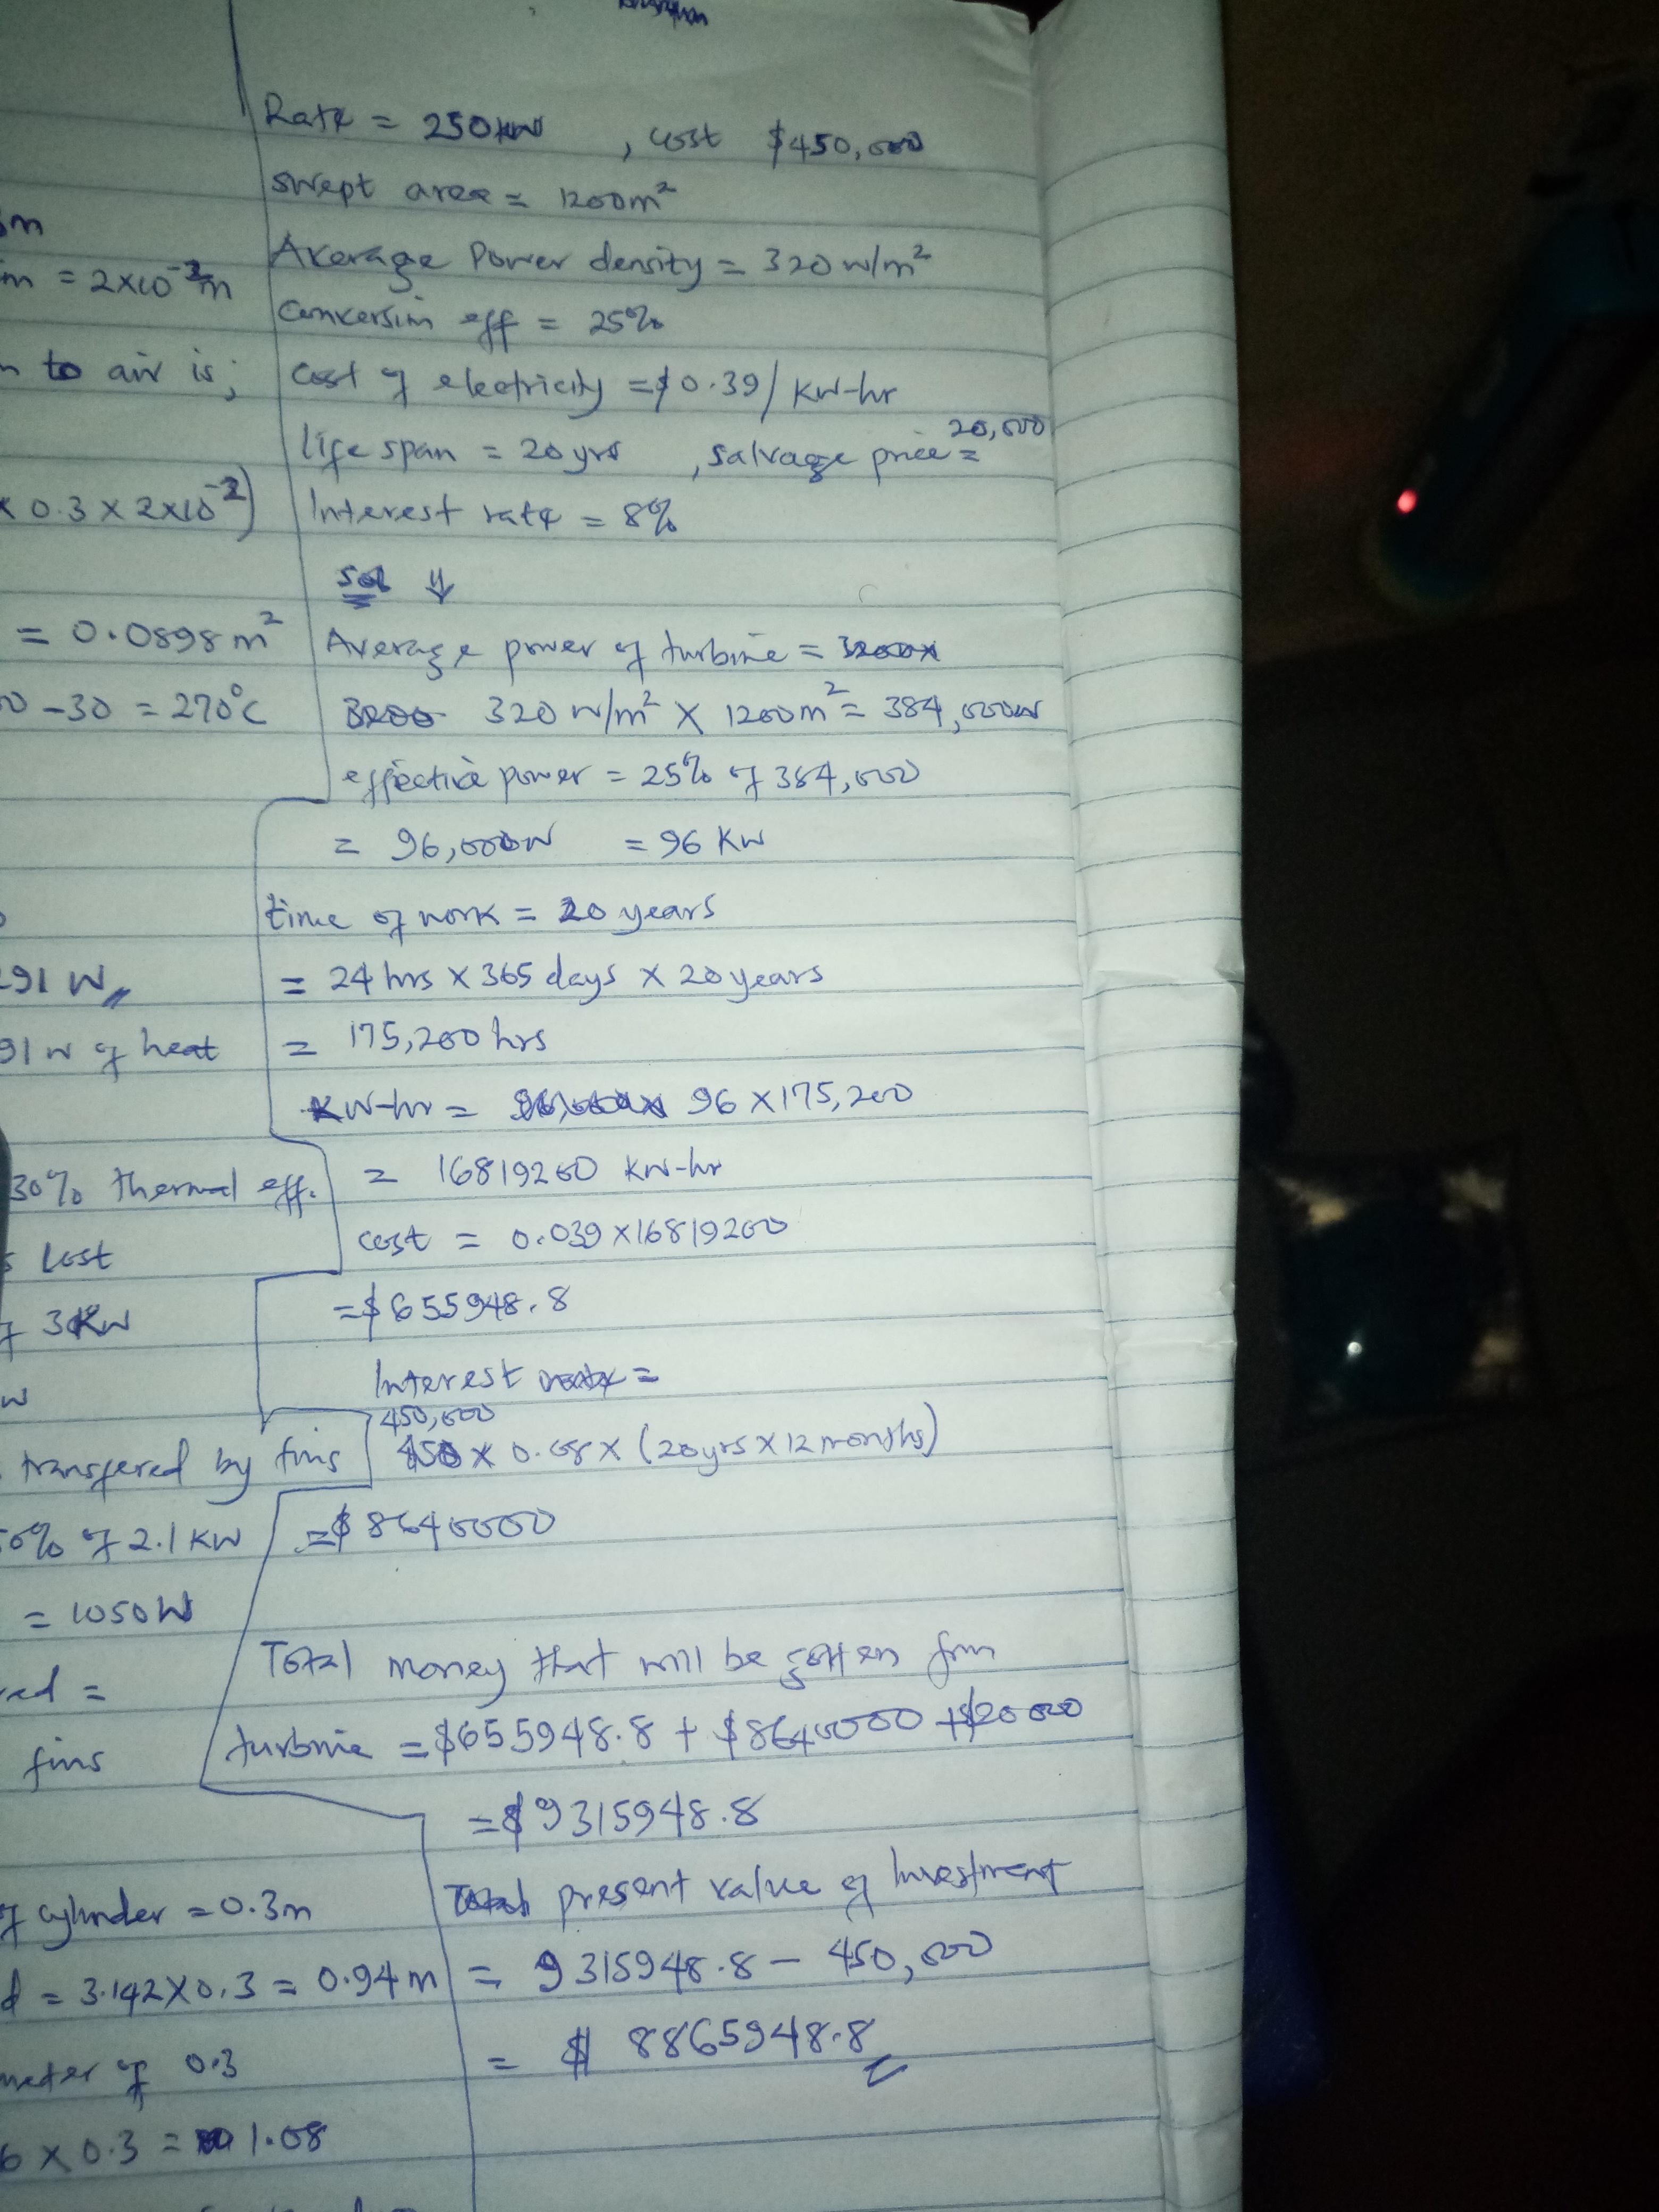 Rate = 250kW , cost $450,000
swept area = 1200m²
Average Power density = 320 w/m²
Conversion eff = 25%
Cost of electricity = $0.39/kw-hr
life span = 20 yrs , salvage price = 20,000
Interest rate = 8%
Sol
Average power of turbine =
320 w/m² x 1200m² = 384,000w
effective power = 25% of 384,000
= 96,000W = 96 KW
time of work = 20 years
= 24 hrs x 365 days x 20 years
= 175,200 hrs
KW-hr = 96 x 175,200
= 16819200 kw-hr
cost = 0.039 x 16819200
= $655948.8
Interest =
450,000 x 0.08 x (20yrs x 12 months)
= $8640000
Total money that will be gotten from
turbine = $655948.8 + $8640000 + $20000
= $9315948.8
present value of Investment
= 9315948.8 - 450,000
= $8865948.8
m = 2x10⁻²m
to air is;
x 0.3 x 2x10⁻²)
= 0.0898m²
-30 = 270°C
291 W
91 w of heat
30% thermal eff.
lost
w
transfered by fins
50% of 2.1 KW
= 1050W
=
fins
of cylinder = 0.3m
d = 3.142x0.3 = 0.94m
of 0.3
6 x 0.3 = 1.08